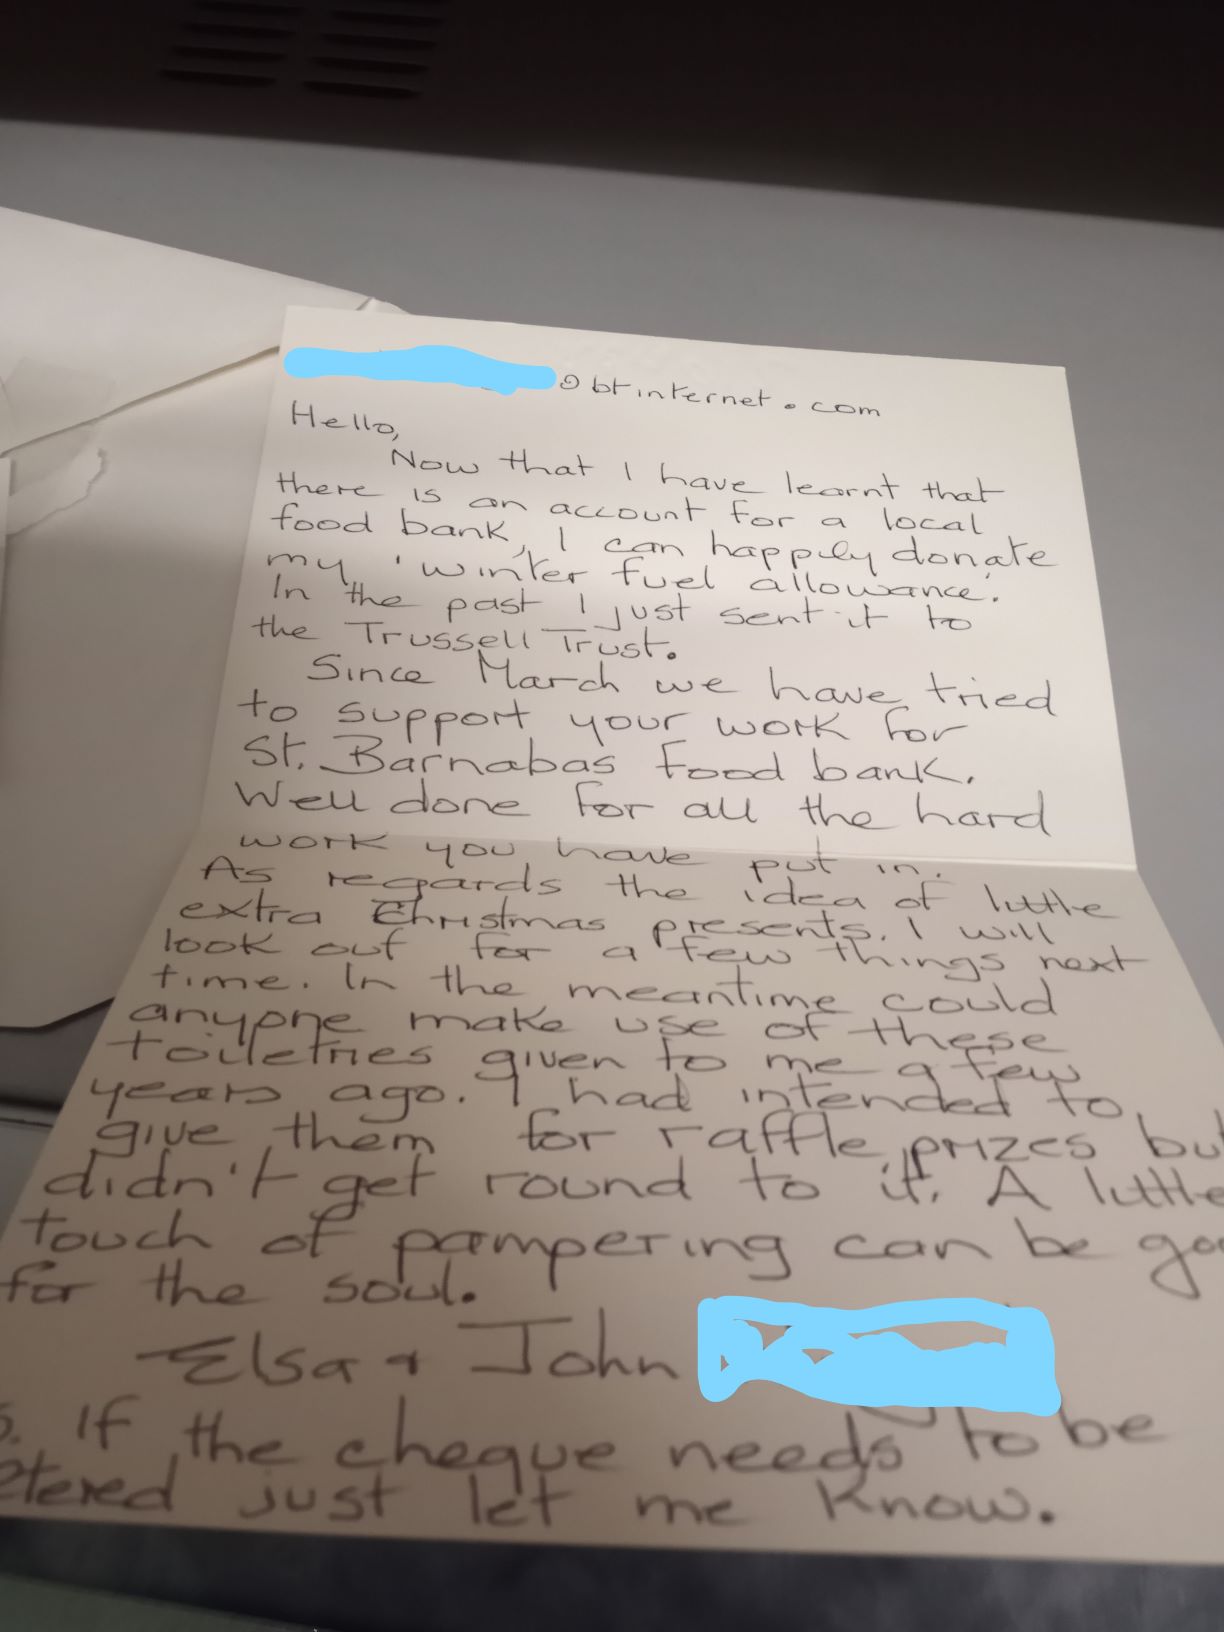 @btinternet.com
Hello,
Now that I have learnt that
there is an account for a local
food bank, I can happily donate
my 'winter fuel allowance'.
In the past I just sent it to
the Trussell Trust.
Since March we have tried
to support your work for
St. Barnabas food bank.
Well done for all the hard
work you have put in.
As regards the idea of little
extra Christmas presents. I will
look out for a few things next
time. In the meantime could
anyone make use of these
toiletries given to me a few
years ago. I had intended to
give them for raffle prizes bu
didn't get round to it. A little
touch of pampering can be goo
for the soul.
Elsa + John
S. If the cheque needs to be
etered just let me know.